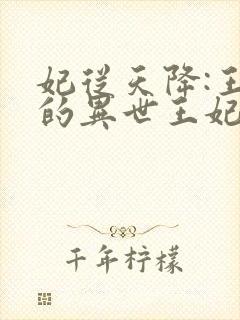 妃從天降:王
的異世王妃
千年柠檬